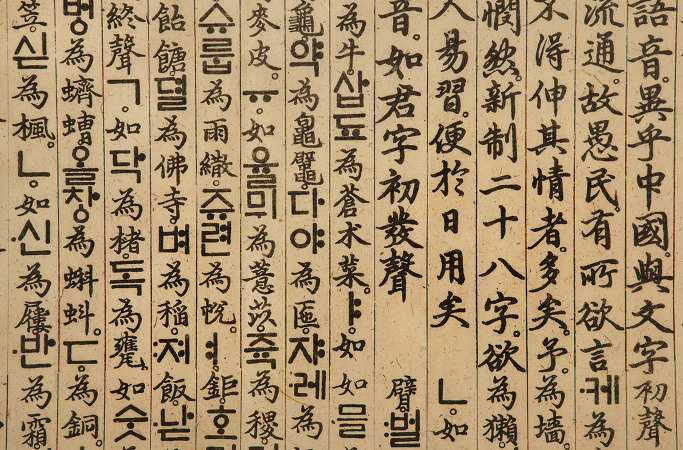 語音。異乎中國。與文字初聲
流通。故愚民。有所欲言케為
不得伸其情者。多矣。予。為墻。
憫然。新制二十八字。欲為獺。
人易習。便於日用矣ㄴ。如
音。如君字初發聲臂벌
為牛삽됴為蒼朮菜。ㅑ。如如믈
龜약為鼊。다야為匜。쟈레為
麥皮。ㅠ。如율믜為薏苡。쥭為稷。
슈룹為雨繖。쥬련為帨。ㅕ。鉅호
飴餹。뎔為佛寺。벼為稻。져飯낟
終聲ㄱ。如닥為楮。독為甕。如숫
병為蠐螬。올창為蝌蚪。ㄷ。為銅。
笠。싣為楓。ㄴ。如신為屨。반為霜。